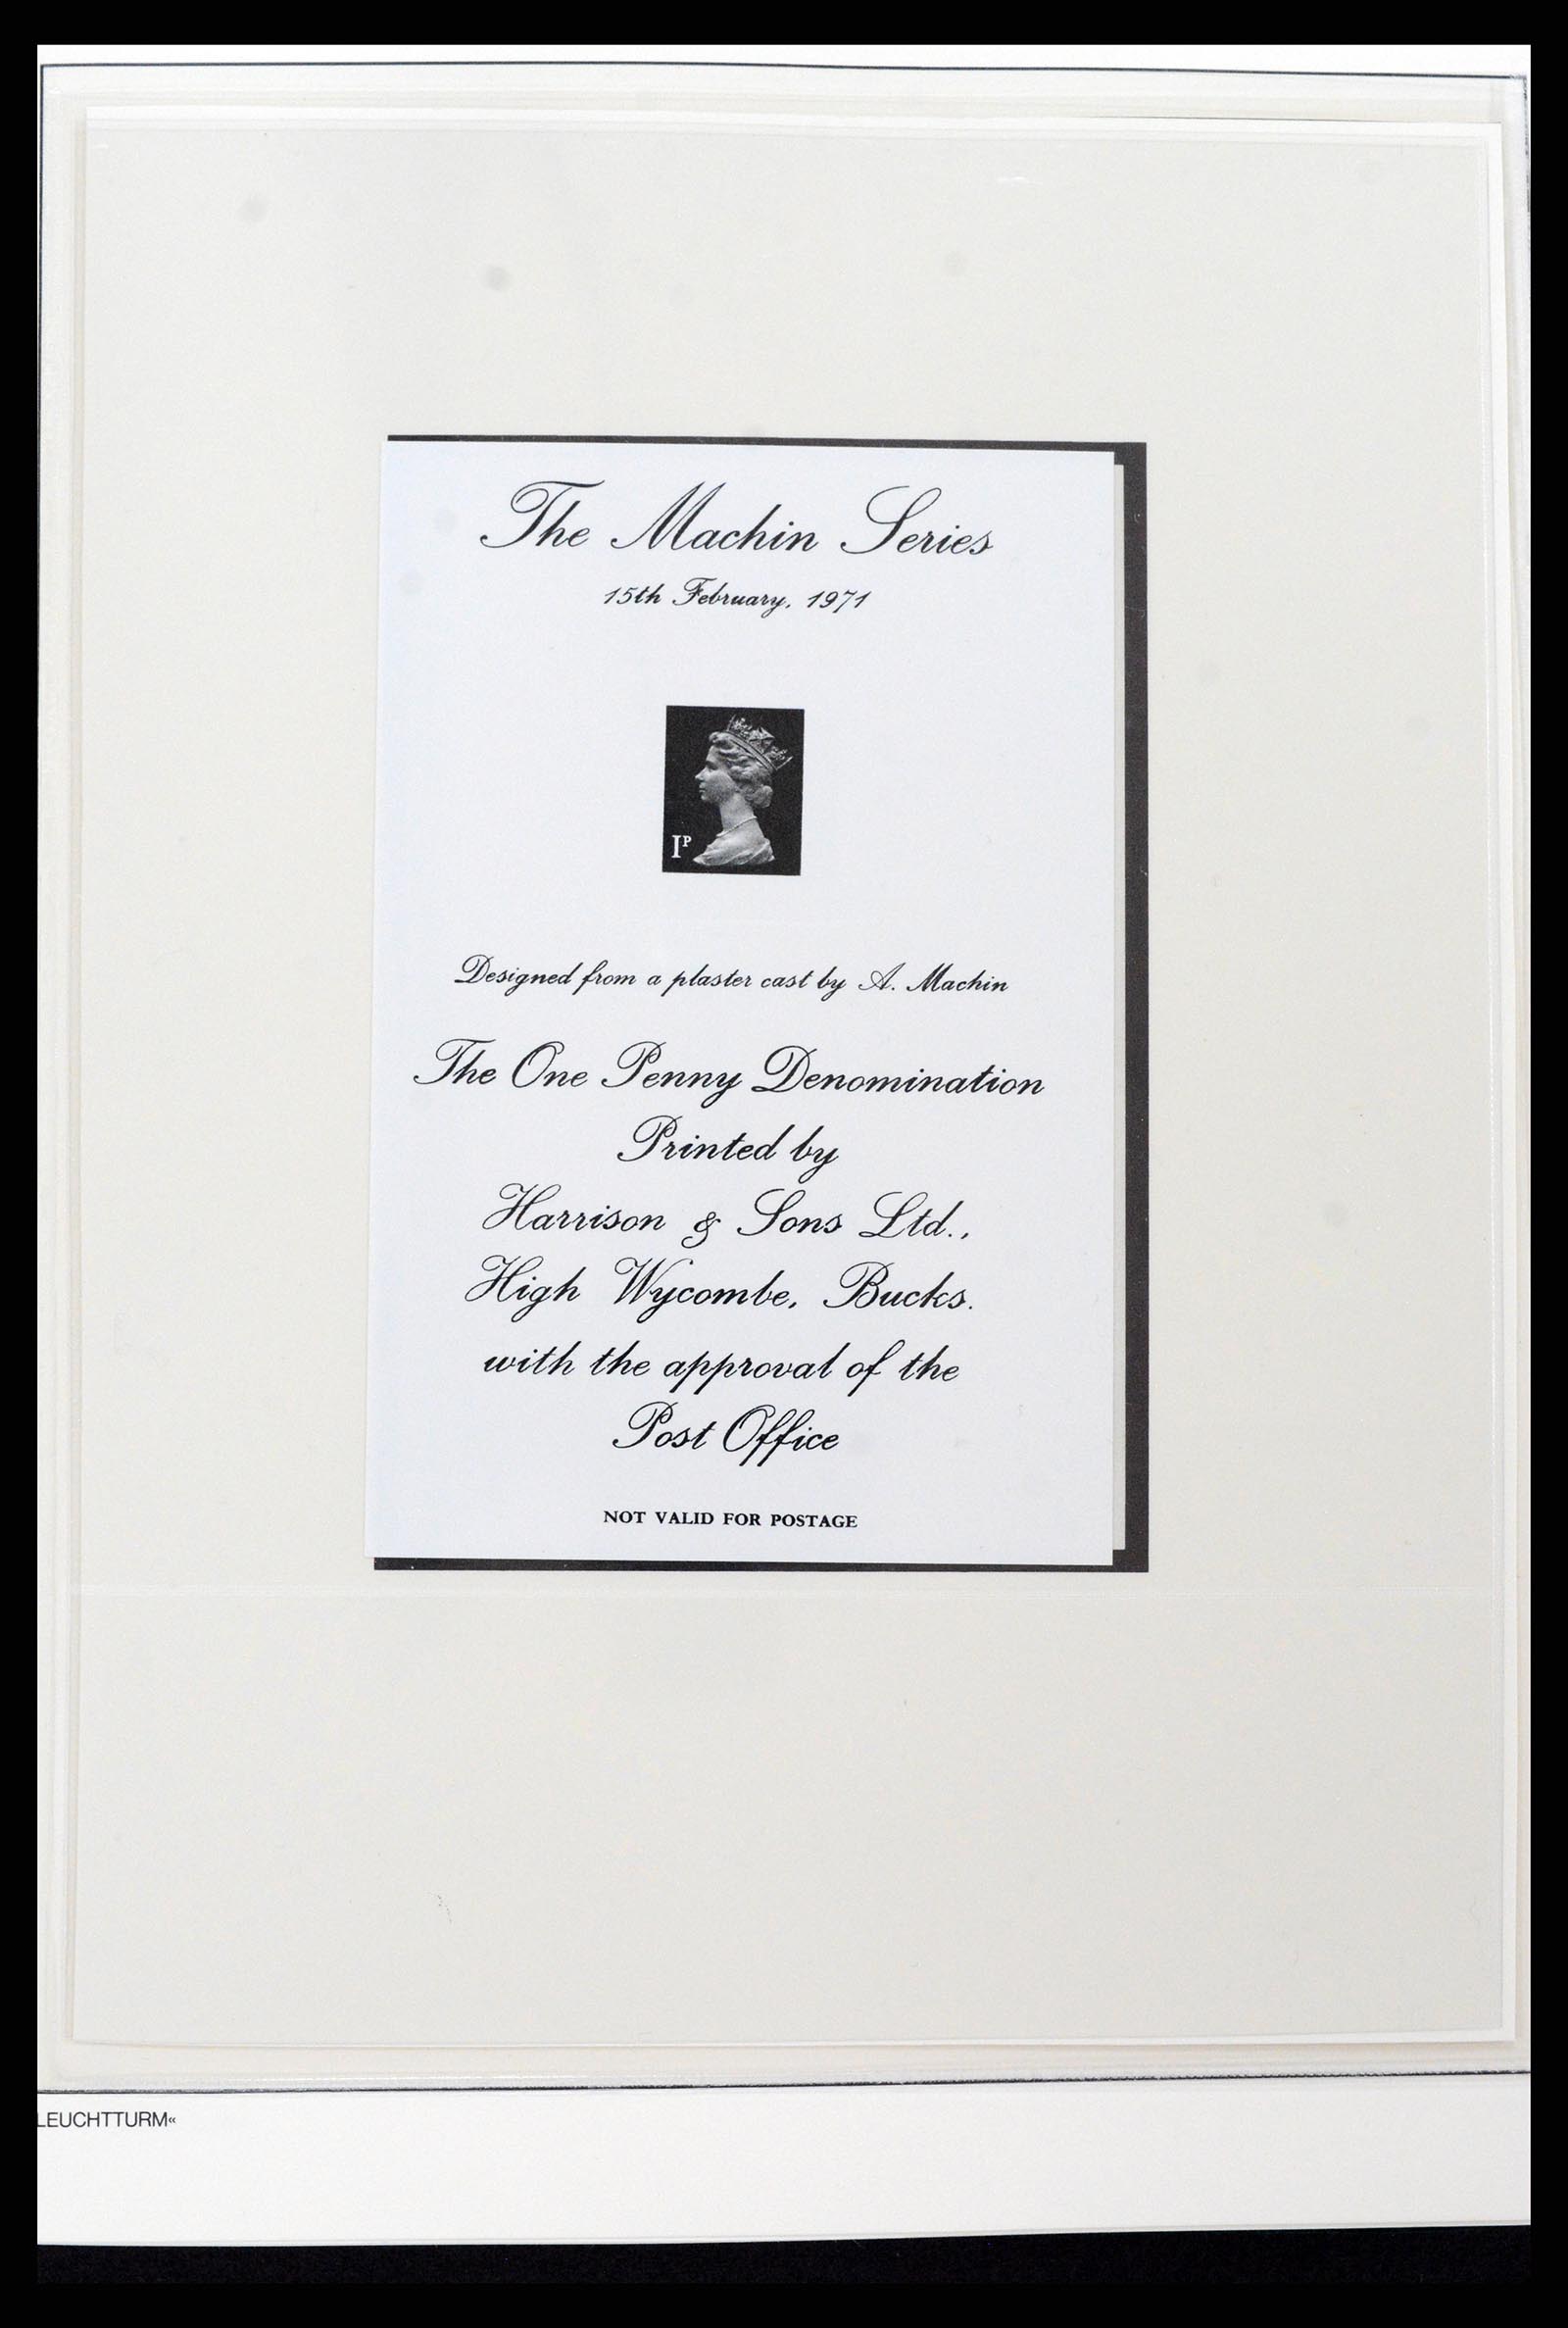 The Machin Series
15th February, 1971
1P
Designed from a plaster cast by A. Machin
The One Penny Denomination
Printed by
Harrison & Sons Ltd.,
High Wycombe, Bucks.
with the approval of the
Post Office
NOT VALID FOR POSTAGE
LEUCHTTURM«